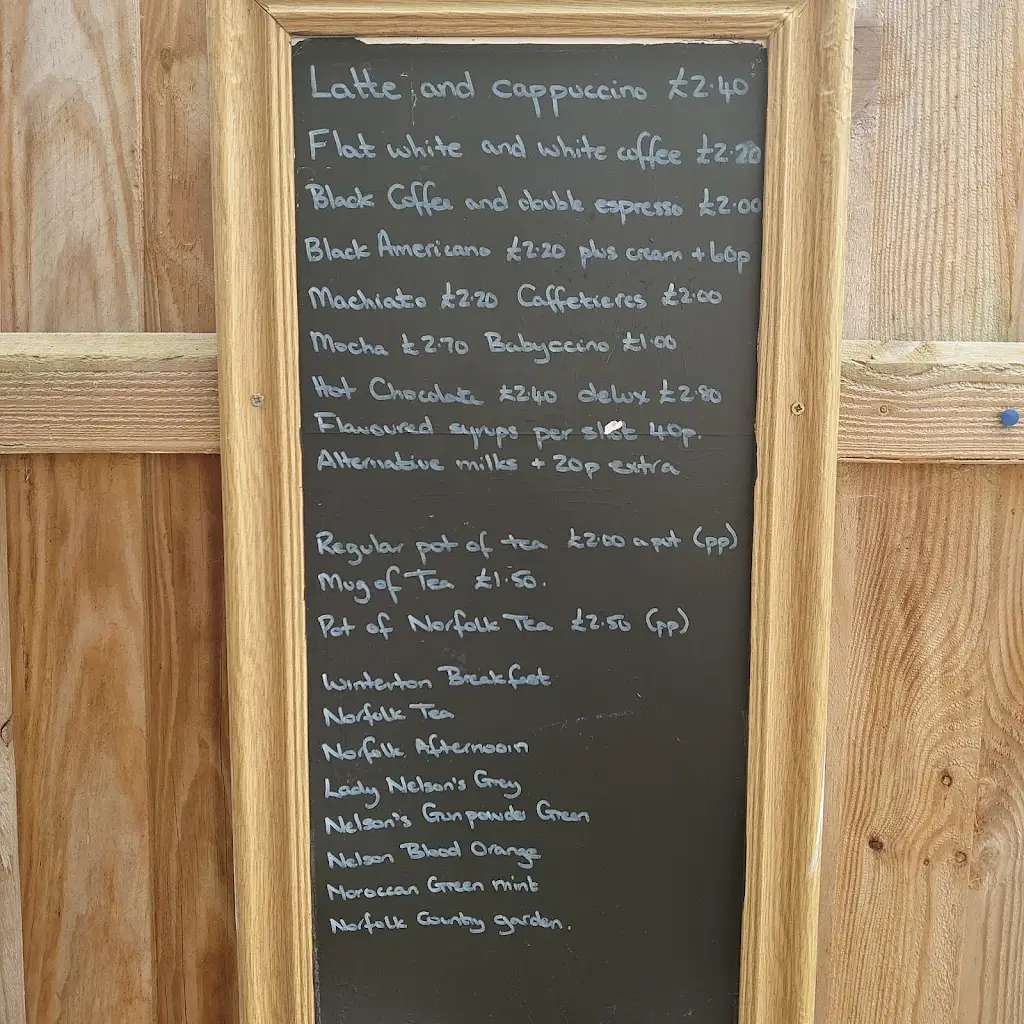 Latte and cappuccino £2.40
Flat white and white coffee £2.20
Black Coffee and double espresso £2.00
Black Americano £2.20 plus cream + 60p
Machiato £2.20 Caffetieres £2.00
Mocha £2.70 Babyccino £1.00
Hot Chocolate £2.40 delux £2.80
Flavoured syrups per 40p.
Alternative milks + 20p extra
Regular pot of tea £2.00 a pot (pp)
Mug of Tea £1.50.
Pot of Norfolk Tea £2.50 (pp)
Winterton Breakfast
Norfolk Tea
Norfolk Afternooin
Lady Nelson's Grey
Nelson's Gunpowder Green
Nelson Blood Orange
Moroccan Green mint
Norfolk Country garden.